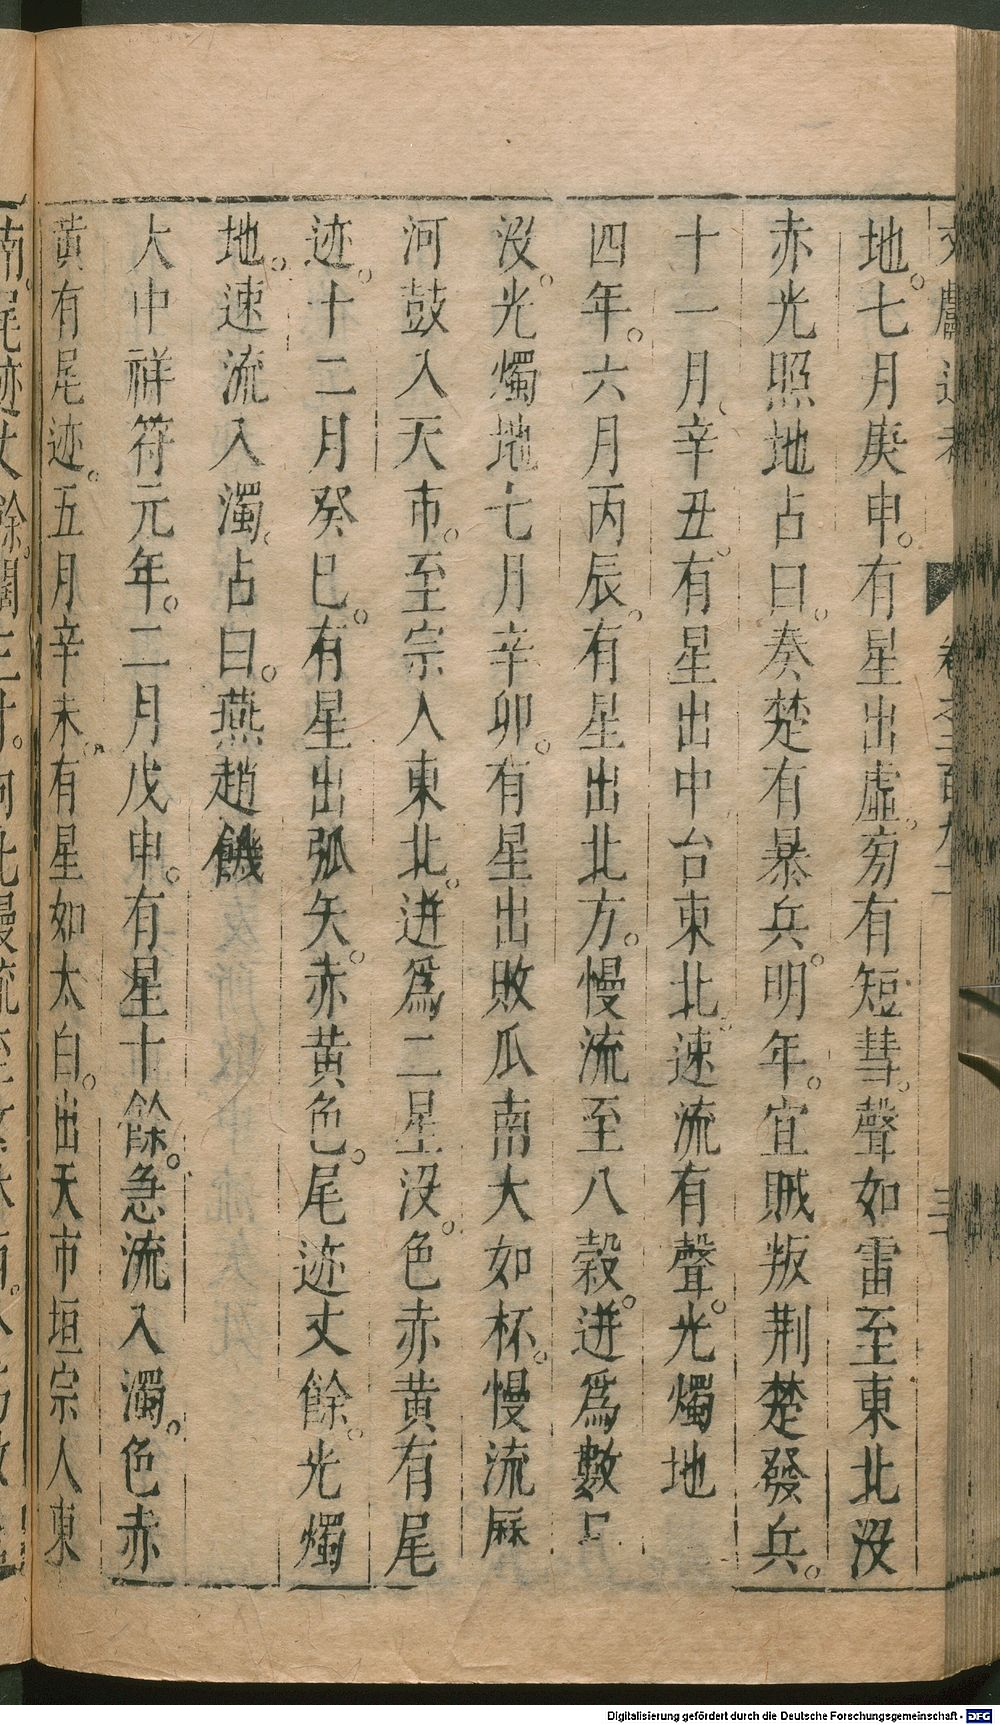 地。七月庚申。有星出虛。旁有短彗。聲如雷至東北沒
赤光照地占曰。秦楚有暴兵。明年。宜賊叛荆楚發兵。
十一月。辛丑。有星出中台東北。速流有聲。光燭地
四年。六月丙辰。有星出北方。慢流至八穀。迸爲數
沒。光燭地七月辛卯。有星出敗瓜南大如杯。慢流歷
河鼓入天市。至宗人東北。迸爲二星沒。色赤黃有尾
迹。十二月癸巳。有星出弧矢。赤黃色。尾迹丈餘。光燭
地。速流入濁。占曰。燕趙饑
大中祥符元年。二月戊申。有星十餘。急流入濁。色赤
黃有尾迹。五月辛未。有星如太白。出天市垣宗人東
Digitalisierung gefördert durch die Deutsche Forschungsgemeinschaft - DFG